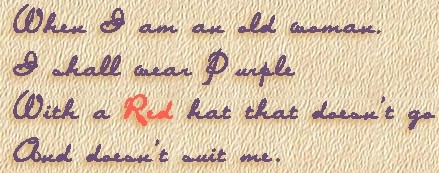 When I am an old woman.
I shall wear Purple
With a Red hat that doesn't go
And doesn't suit me.